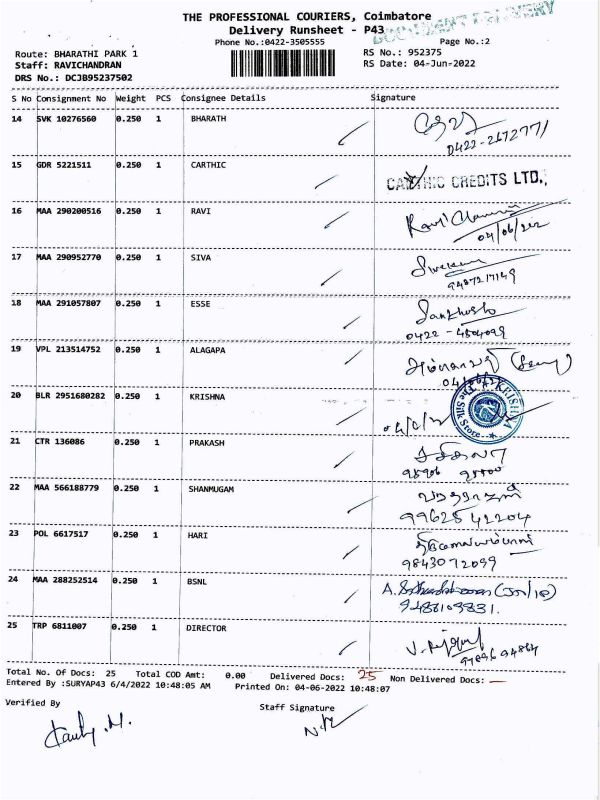 THE PROFESSIONAL COURIERS, Coimbatore
DOCUMENT DELIVERY
Delivery Runsheet - P43
Phone No.:0422-3505555
Page No.:2
Route: BHARATHI PARK 1
RS No.: 952375
Staff: RAVICHANDRAN
RS Date: 04-Jun-2022
DRS No.: DCJB95237502
S No Consignment No Weight PCS Consignee Details Signature
14 SVK 10276560 0.250 1 BHARATH
0422-2672771
15 GDR 5221511 0.250 1 CARTHIC
CARTHIC CREDITS LTD.,
16 MAA 290200516 0.250 1 RAVI
04/06/202
17 MAA 290952770 0.250 1 SIVA
9487217149
18 MAA 291057807 0.250 1 ESSE
Santhosh
0422 - 4504099
19 VPL 213514752 0.250 1 ALAGAPA
20 BLR 2951680282 0.250 1 KRISHNA
KRISHNA
The Silk Store
21 CTR 136086 0.250 1 PRAKASH
22 MAA 566188779 0.250 1 SHANMUGAM
99625 42204
23 POL 6617517 0.250 1 HARI
9843072099
24 MAA 288252514 0.250 1 BSNL
9488109831.
25 TRP 6811007 0.250 1 DIRECTOR
9789694864
Total No. Of Docs: 25 Total COD Amt: 0.00 Delivered Docs: 25 Non Delivered Docs: —
Entered By :SURYAP43 6/4/2022 10:48:05 AM Printed On: 04-06-2022 10:48:07
Verified By
Staff Signature